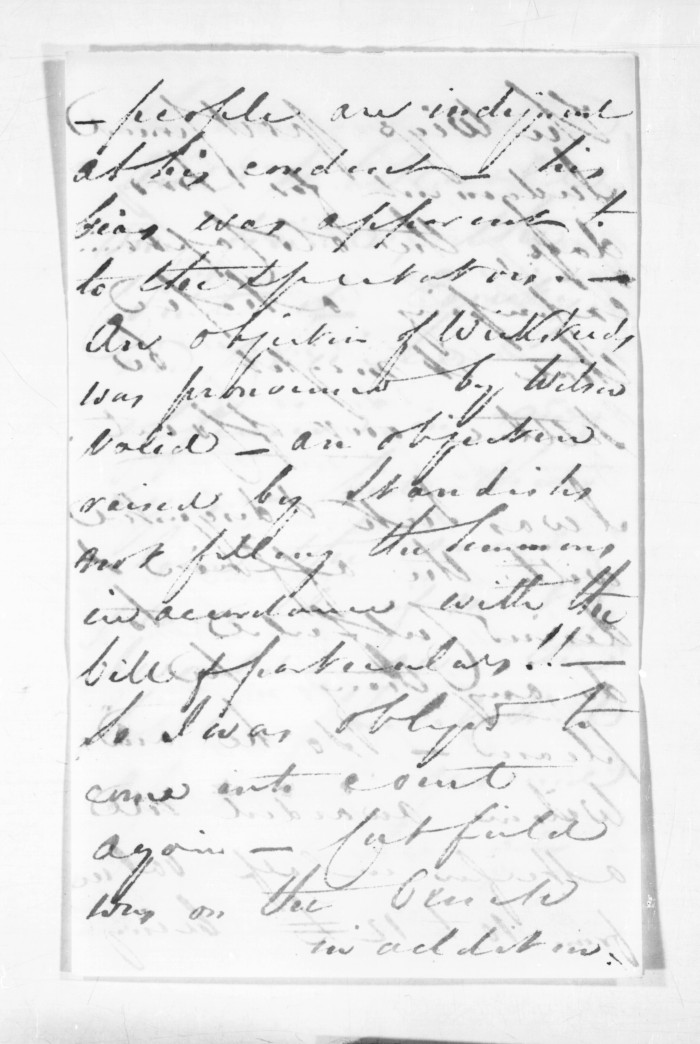 - people are indignant
at his conduct - his
bias was apparent
to the spectators -
An objection of Wicksteeds
was pronounced by Wilson
valid - an objection
raised by Standish's
not filling the summons
in accordance with the
bill of particulars!! -
So I was obliged to
come into court
again - Cutfield
was on the Bench
in addition.